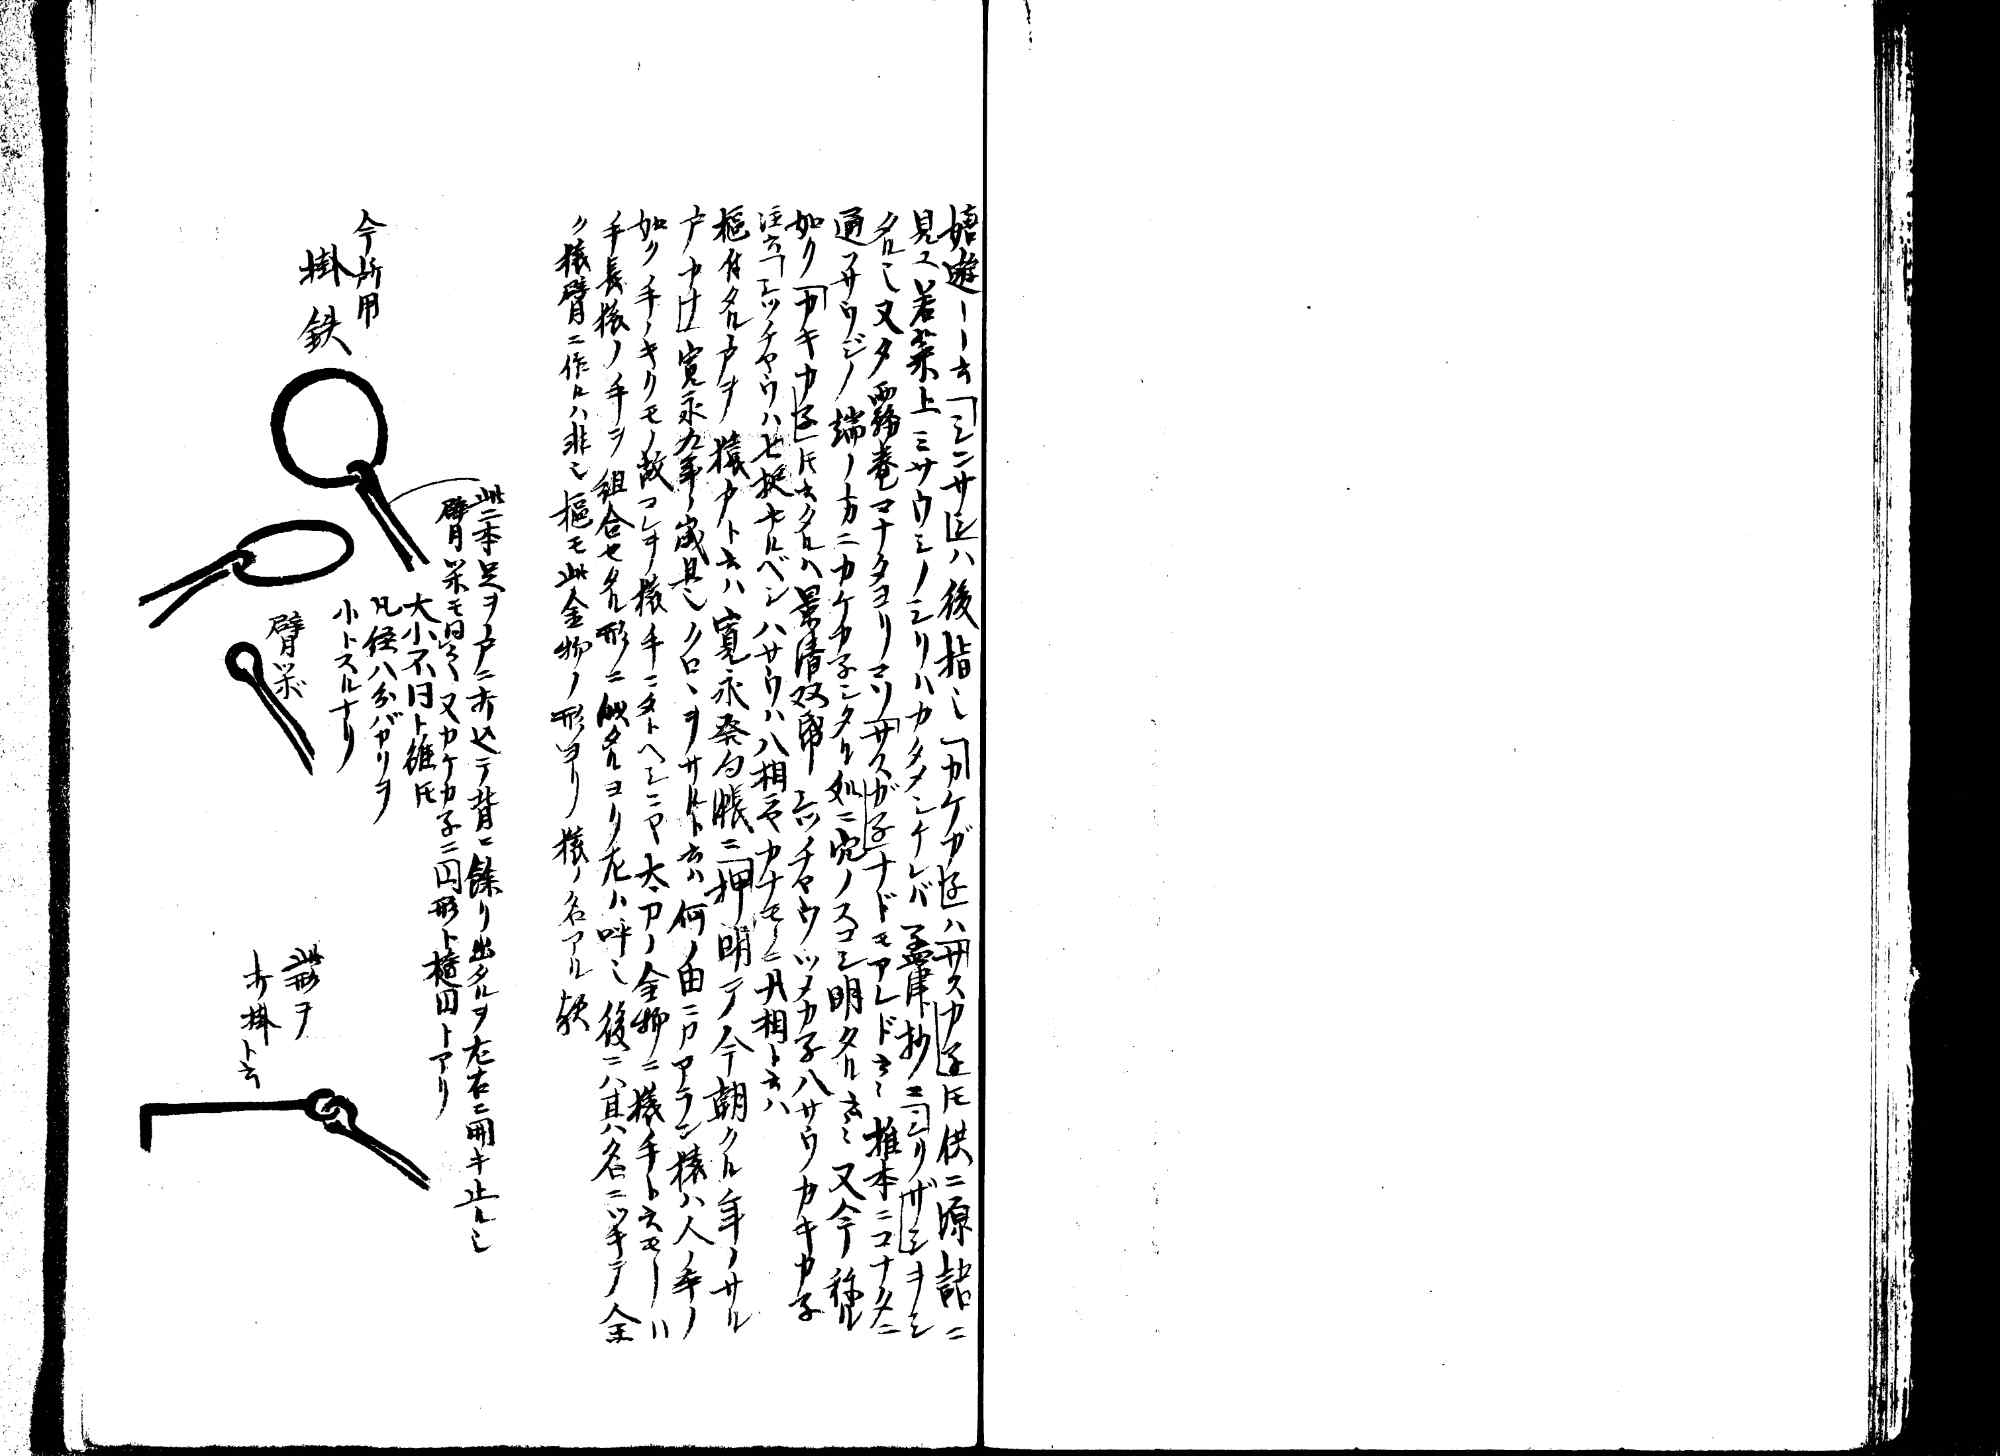 嬉遊ーー云「シンサ」ハ後指シ「カケガ子」ハ「サスカ子」トモ供ニ源語ニ
見ユ若菜上ミサウシノシリハカタメシケレバ孟津抄ニ「シリザシ」ヲシ
タルシ又夕霧巻アナタヨリマソ「サスガ子」ナドモアレド云々椎本ニコナタニ
通フサウジノ端ノ方ニカケカ子シタル処ニ穴ノスコシ明タル云々又今種ル
如ク「カキカ子」トモ云タルハ景清双帋ニツノチヤウツメカ子八サウカキカ子
注云「シツチヤウハ七挺ナルベシハサウハ八相ニテカナモノニ八相ト云ハ
枢付タル戸ヲ猿戸ト云ハ寛永発句帳ニ「押明アノ今朝クル年ノサル
戸カナ」寛永九年ノ歳旦シクロヽヲサルト云ハ何ノ由ニカアラン猿ハ人ノ手ノ
如ク手ノキクモノ故コレヲ猿手ニタトヘシニヤ太刀ノ金物ニ猿手ト云モノハ
手長猿ノ手ヲ組合セタル形ニ似タルヨリ左ハ呼シ後ニハ其ハ名ニツキテ全
ク猿臂ニ作ルハ非シ枢モ此金物ノ形ヨリ猿ノ名アル歟
此二本足ヲ戸ニ打込テ背ニ餘リ出タルヲ左右ニ開キ止ルシ
臂栄モ同之又カケカ子ニ円形ト楕円トアリ
大小不同ト雖トモ
凡径八分バカリヲ
小トスルナリ
今所用
掛鉄
臂栄
此形ヲ
打掛ト云